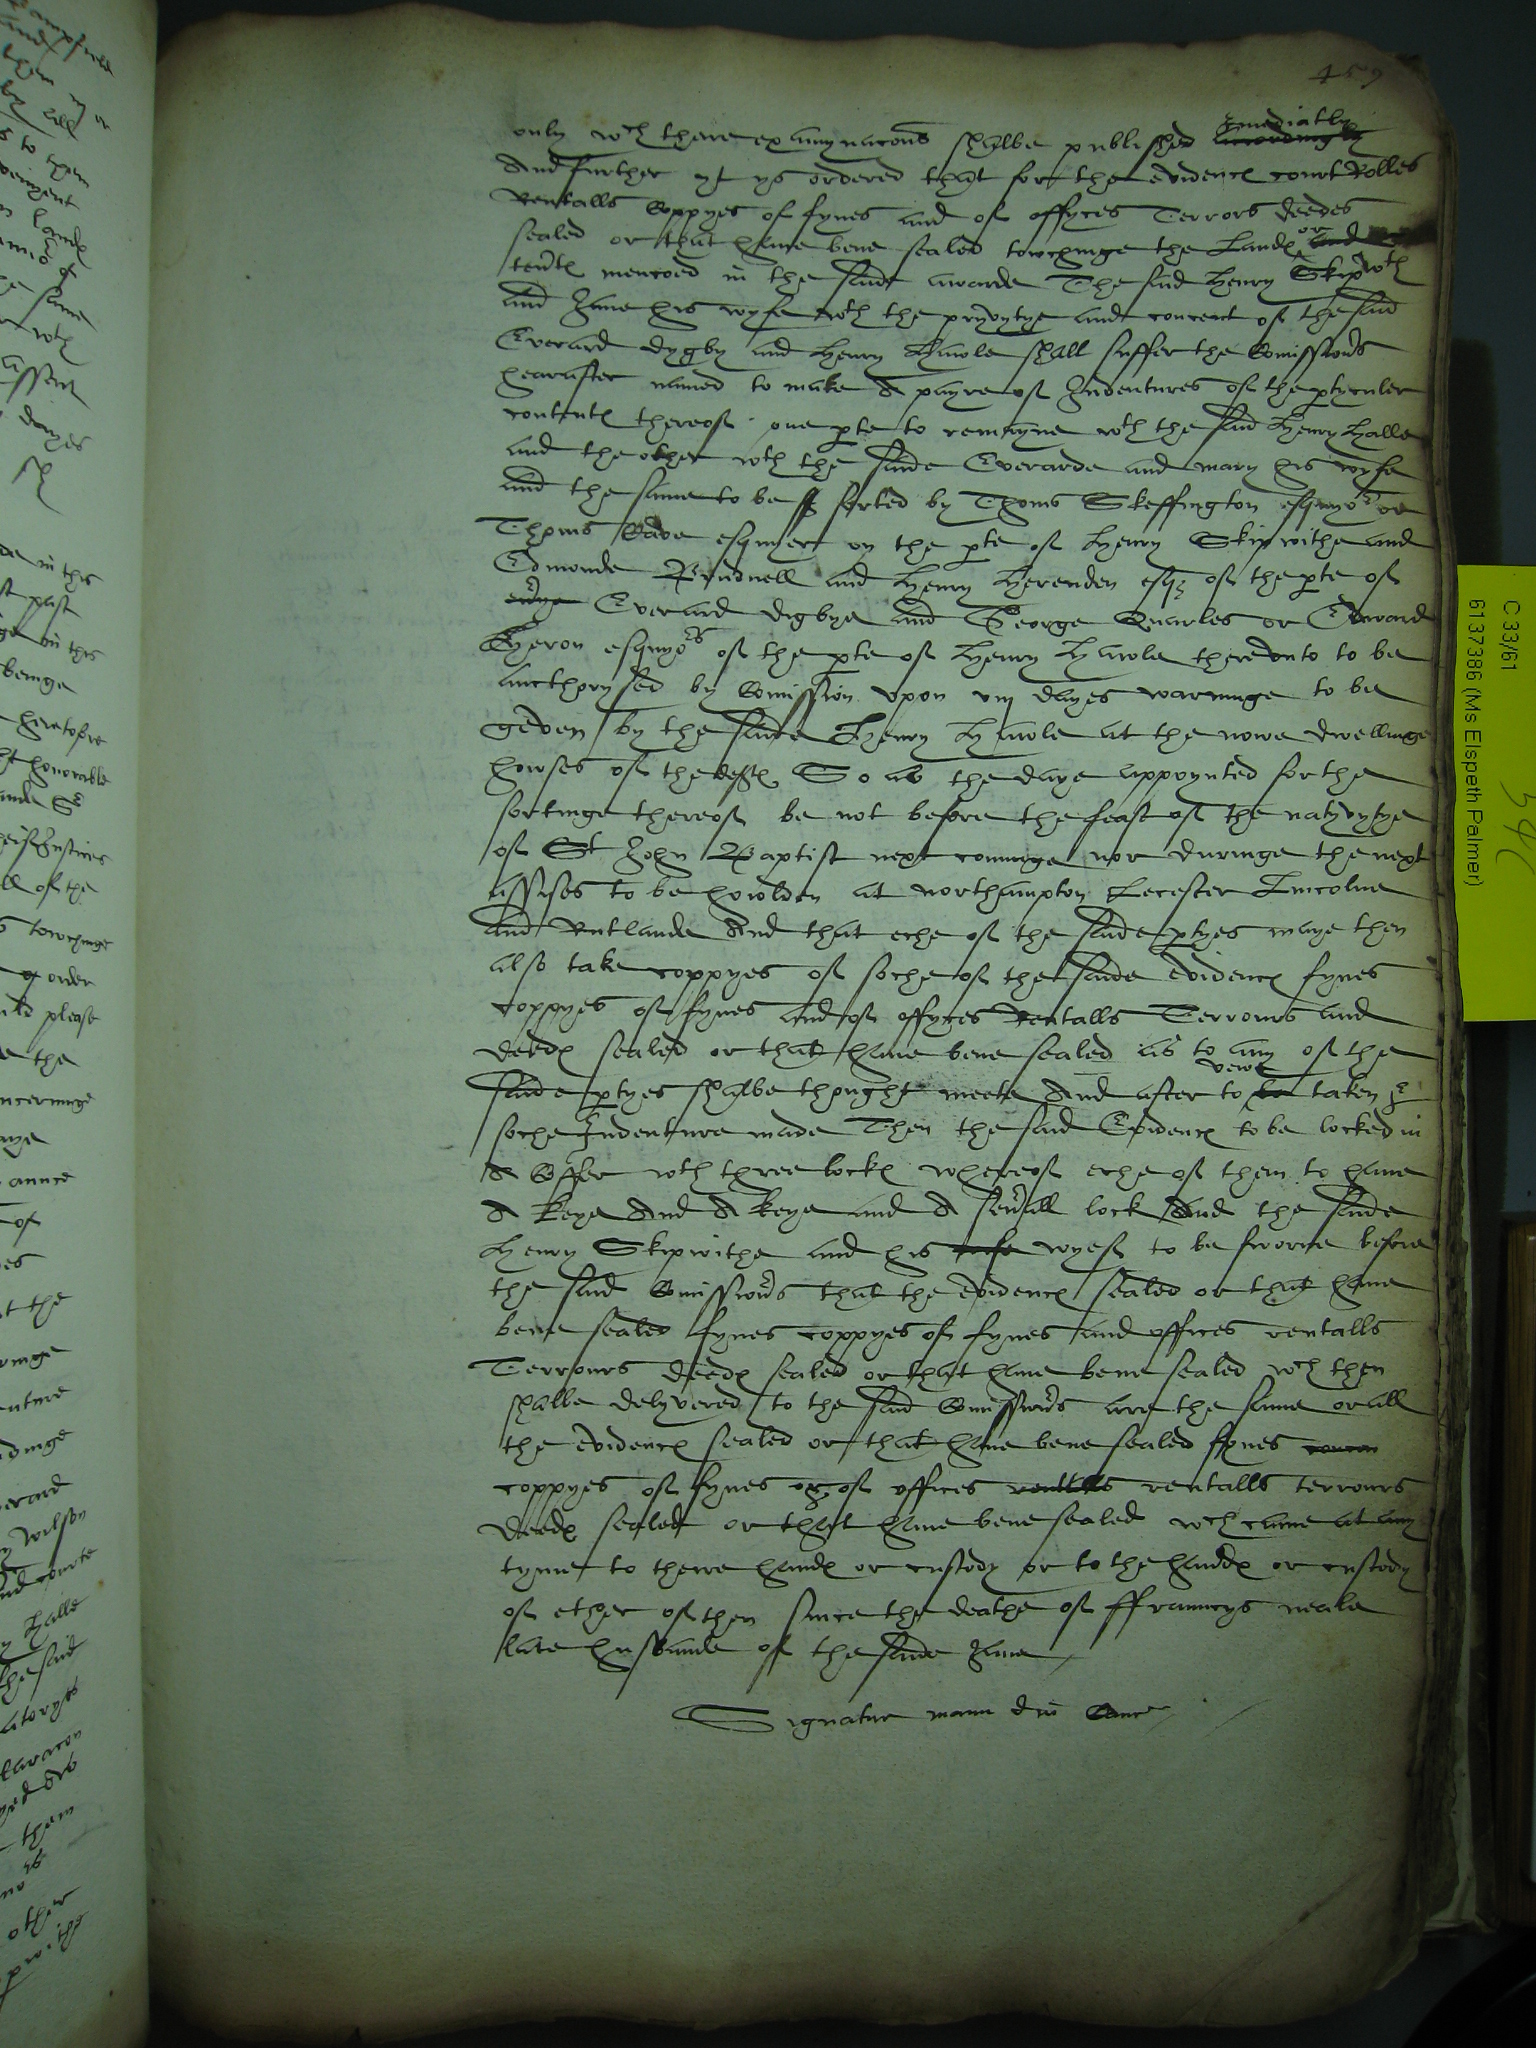 459
only wch there examynacons shalbe published accordingly Imediatly
And further yt ys ordered that for the evidenc court Rolles
Rentalls Coppyes of fynes and of offyces Terrors deedes
sealed or that have bene sealed towchinge the Land or and
tent mencoed in the saide awarde The said Henry Skipwth
and Jane his wyfe wth the pryvytye and concent of the said
Everard dygby and Henry Hawle shall suffer the Comissions
hearafter named to make A payre of Indentures of the ptyculer
content thereof one pte to remayne wth the said Henry Halle
and the other wth the saide Everarde and mary his wyfe
and the same to be sorted by Thoms Skeffington esquyor or
Thoms Cave esquyer on the pte of Henry Skipwithe and
Edmonde Brudnell and Henry Herenden esq of the pte of
Everard digbye and George Quarles or Edward
Heron esquyors of the pte of Henry Hawle therevnto to be
aucthorysed by Comission vpon viij dayes warninge to be
geven by the saide Henry Hawle at the nowe dwellinge
howses of the deft So as the daye appoynted for the
sortinge thereof be not before the feast of the natyvytye
of St John Baptist next cominge nor duringe the next
assises to be howlden at northampton Lecester Lincolne
and Rutlande And that eche of the saide ptyes maye then
also take coppyes of soche of the saide evidenc fynes
coppyes of fynes and of offyces Rentalls Terrours and
deed sealed or that have bene sealed as to any of the
saide ptyes shalbe thought meete And after to be vewe taken &
soche Indenture made Then the said Evidenc to be locked in
A Coffer wth three lock whereof eche of them to have
A keye And A keye and A sevall lock And the saide
Henry Skipwithe and his wife wyef to be sworne before
the said Comissions that the evidenc sealed or that have
bene sealed fynes coppyes of fynes and offices rentalls
Terrours deed sealed or that have bene sealed wch then
shalbe delyvered to the said Comissions are the same or all
the evidenc sealed or that have bene sealed fynes
coppyes of fynes or of offices rentalls rentalls terrours
deed sealed or that have bene sealed wch came at any
tyme to there hand or custody or to the hand or custody
of ether of then since the deathe of ffrauncys neale
late husbande of the saide Jane
Signatur manu dni Canc
C 33/61
6137386 (Ms Elspeth Palmer)